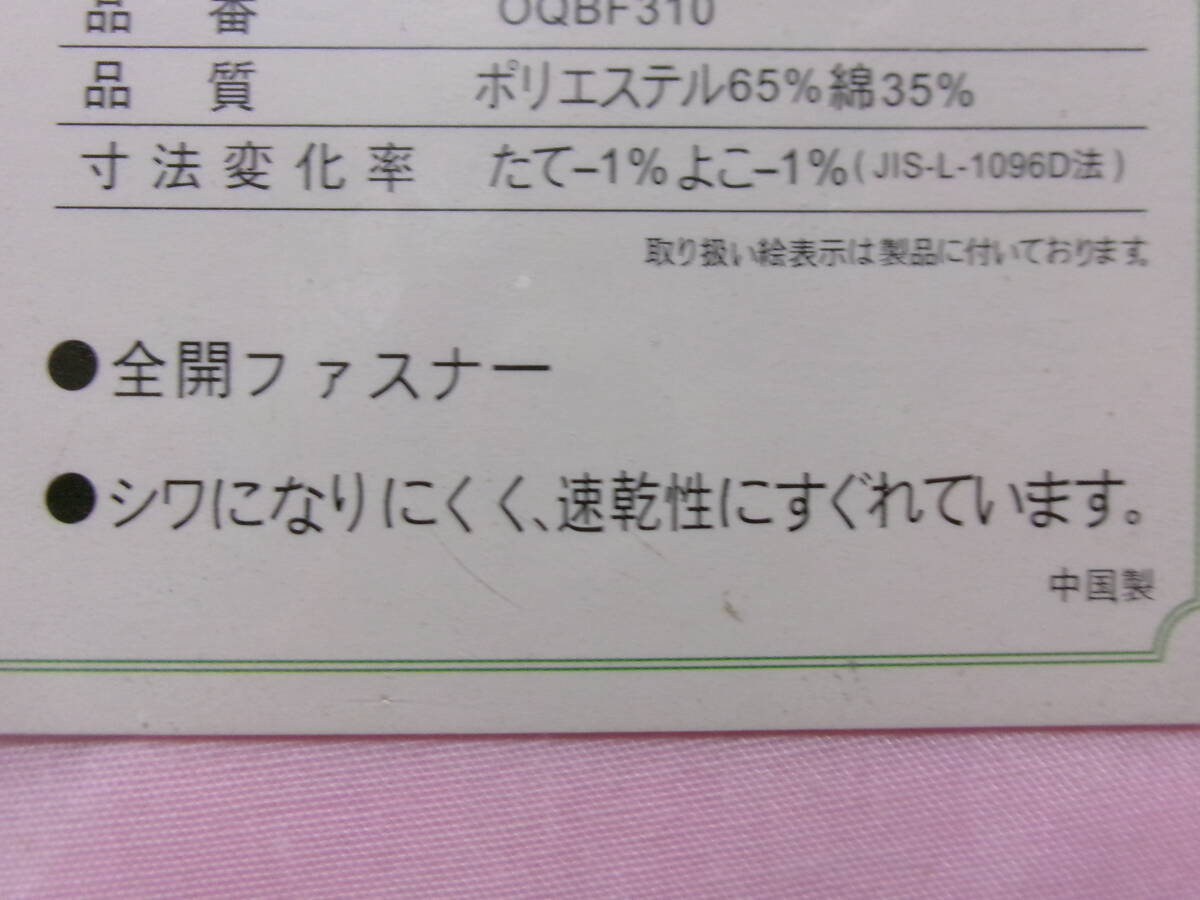 品番 OQBF310
品質 ポリエステル65%綿35%
寸法変化率 たて−1%よこ−1%(JIS-L-1096D法)
取り扱い絵表示は製品に付いております。
●全開ファスナー
●シワになりにくく、速乾性にすぐれています。
中国製